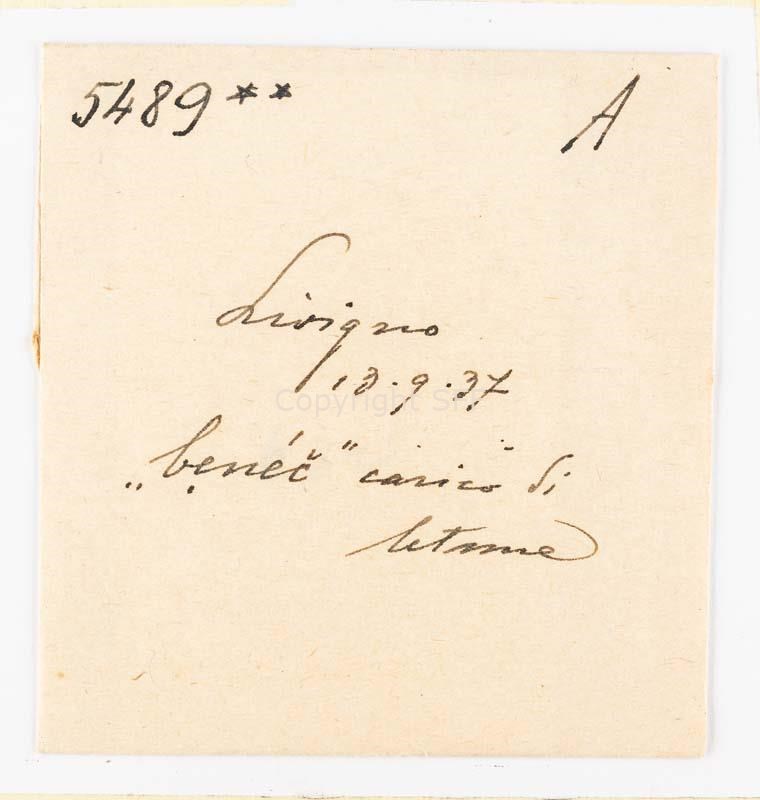 5489** A
Livigno
13.9.37
„bẹnéč“ carico di
letame
Copyright